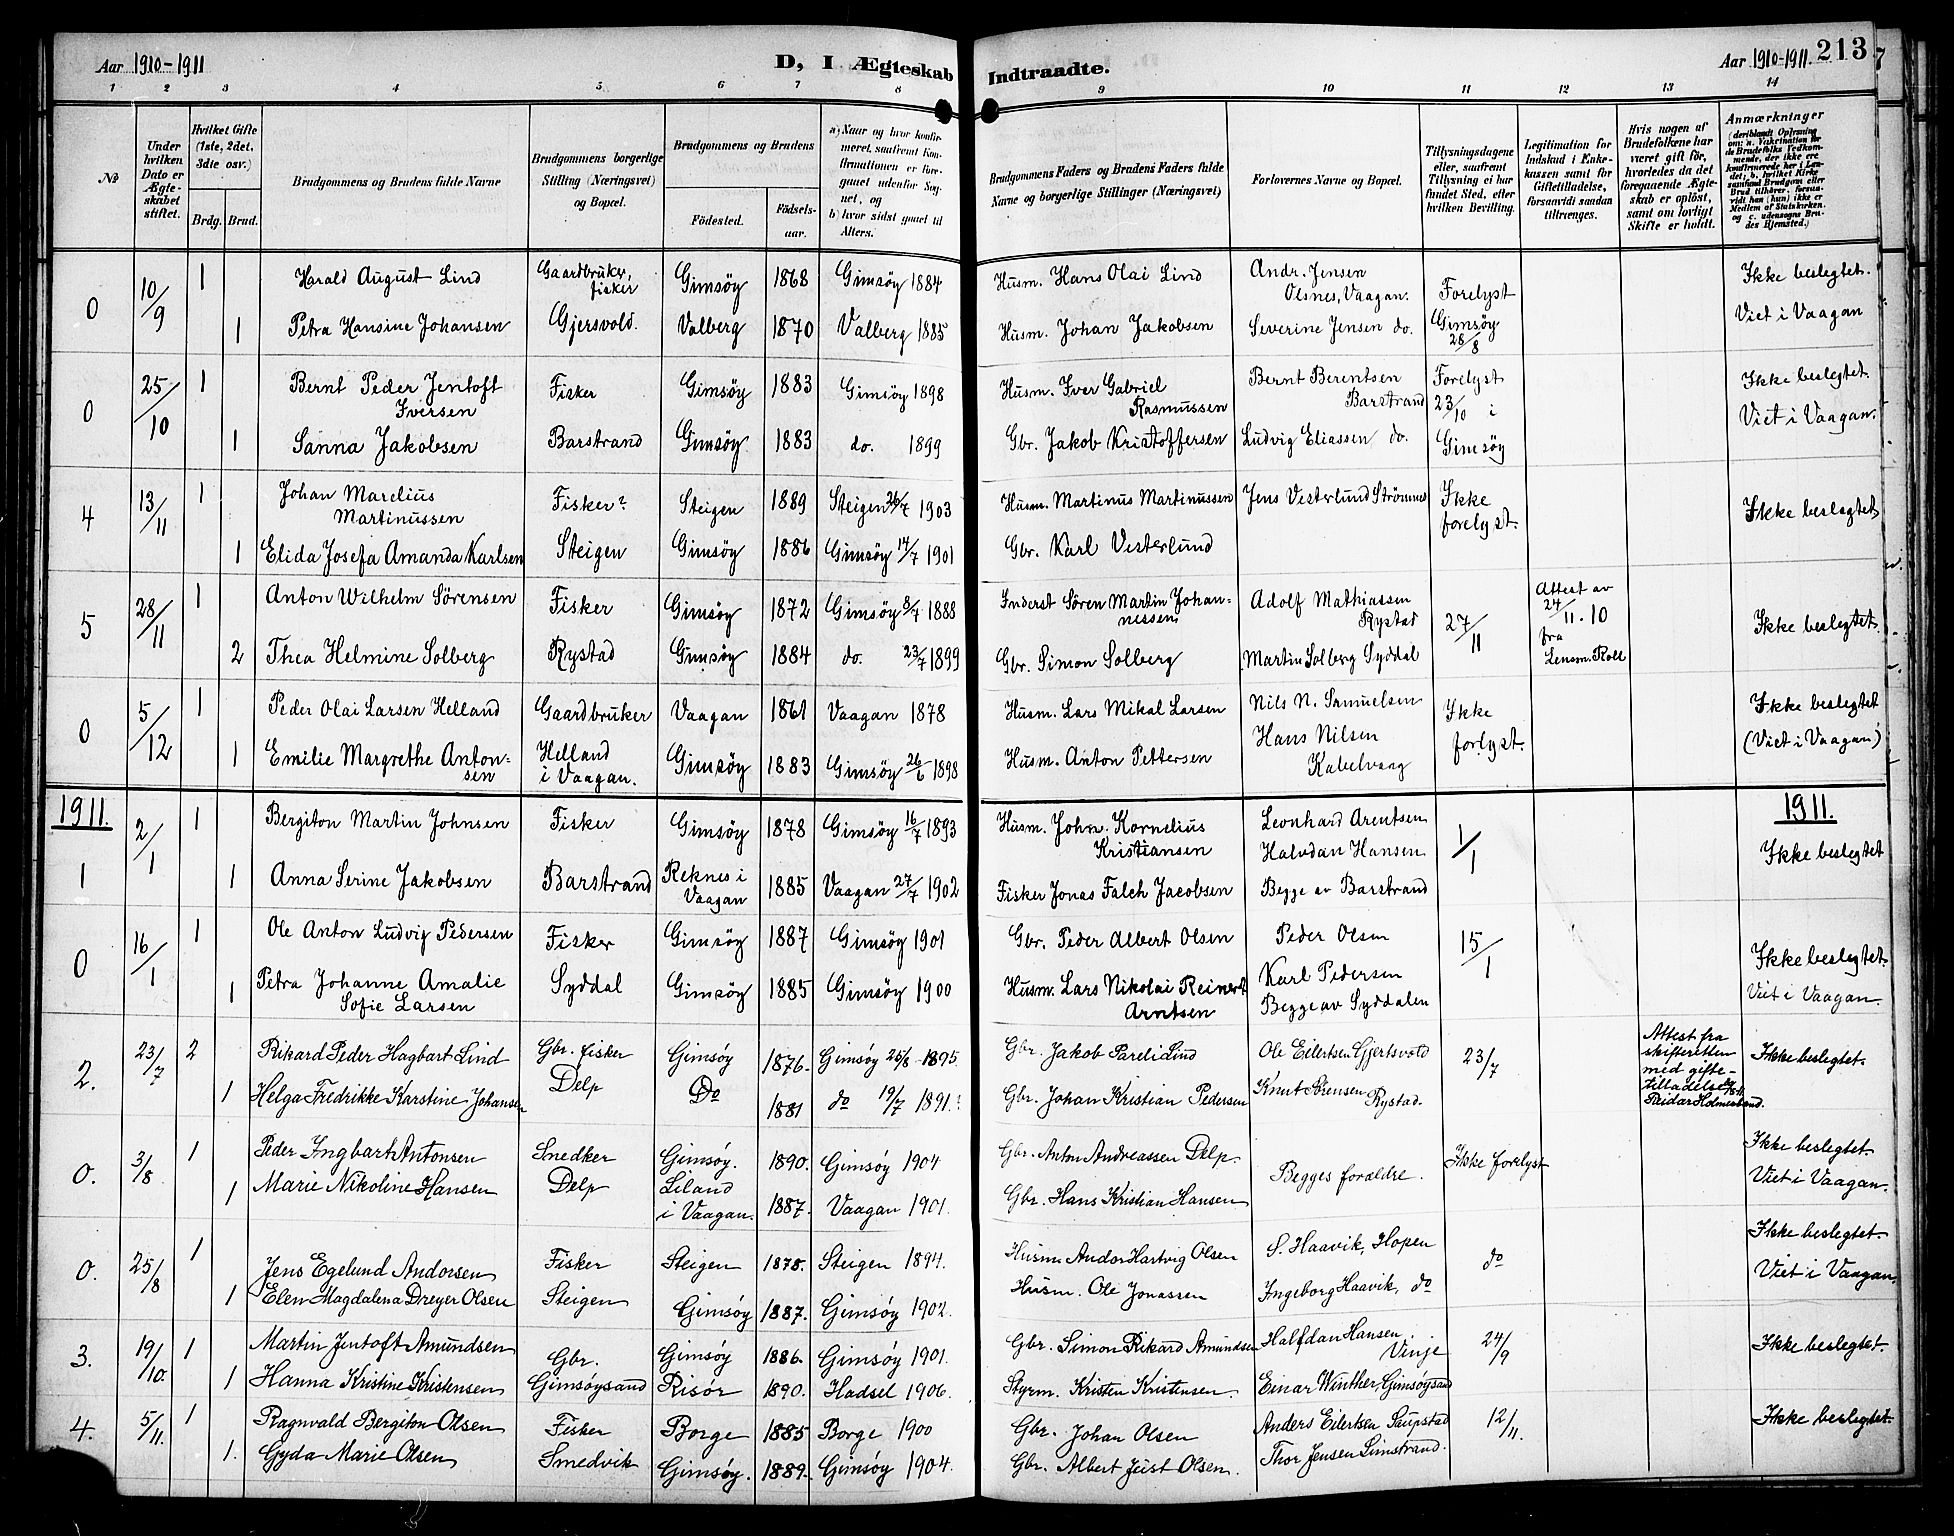 Aar 1910-1911
D, I Ægteskab Indtraadte.
Aar 1910-1911. 213
1 2 3 4 5 6 7 8 9 10 11 12 13 14
№
Under hvilken Dato er Ægteskabet stiftet.
Hvilket Gifte (1ste, 2det, 3die osv.)
Brdg. Brud.
Brudgommens og Brudens fulde Navne
Brudgommens borgerlige Stilling (Næringsvei) og Bopæl.
Brudgommens og Brudens
Födested.
Födselsaar.
a) Naar og hvor konfirmeret, saafremt Konfirmationen er foregaaet udenfor Sognet, og
b) hvor sidst gaaet til Alters.
Brudgommens Faders og Brudens Faders fulde Navne og borgerlige Stillinger (Næringsvei)
Forlovernes Navne og Bopæl.
Tillysningsdagene eller, saafremt Tillysning ei har fundet Sted, efter hvilken Bevilling.
Legitimation for Indskud i Enkekassen samt for Giftetilladelse, forsaavidt saadan tiltrænges.
Hvis nogen af Brudefolkene har været gift før, hvorledes da det foregaaende Ægteskab er opløst, samt om lovligt Skifte er holdt.
Anmærkninger
(deriblandt Oplysning om: a. Vakcination for de Brudefolks Vedkommende, der ikke ere konfirmerede her i Landet; b. hvilket Kirkesamfund Brudgom eller Brud tilhører, forsaavidt han (hun) ikke er Medlem af Statskirken, og c. udensogns Brudes Hjemsted.)
0 10/9 1 Harald August Lind Gaardbruker, fisker Gimsöy 1868 Gimsöy 1884 Husm. Hans Olai Lind Andr. Jensen Olsnes, Vaagan. Forelyst Ikke beslegtet.
1 Petra Hansine Johansen Gjersvold. Valberg 1870 Valberg 1885 Husm. Johan Jakobsen Severine Jensen do. Gimsöy 28/8 Viet i Vaagan
0 25/10 1 Bernt Peder Jentoft Iversen Fisker Gimsöy 1883 Gimsöy 1898 Husm. Iver Gabriel Rasmussen Bernt Berentsen Barstrand Forelyst 23/10 i Ikke beslegtet.
1 Sanna Jakobsen Barstrand Gimsöy 1883 do. 1899 Gbr. Jakob Kristoffersen Ludvig Eliassen do. Gimsöy Viet i Vaagan.
4 13/11 1 Johan Marelius Martinussen Fisker? Steigen 1889 Steigen 26/7 1903 Husm. Martinus Martinussen Jens Vesterlund Strömnes Ikke forelyst. Ikke beslegtet
1 Elida Josefa Amanda Karlsen Steigen Gimsöy 1886 Gimsöy 14/7 1901 Gbr. Karl Vesterlund
5 28/11 1 Anton Wilhelm Sörensen Fisker Gimsöy 1872 Gimsöy 8/7 1888 Inderst Sören Martin Johannessen Adolf Mathiassen Rystad 27/11 Attest av 24/11.10 fra Lensm. Roll Ikke beslegtet.
2 Thea Helmine Solberg Rystad Gimsöy 1884 do. 23/7 1899 Gbr. Simon Solberg Martin Solberg Syddal
0 5/12 1 Peder Olai Larsen Helland Gaardbruker Vaagan 1861 Vaagan 1878 Husm. Lars Mikal Larsen Nils N. Samuelsen Ikke forlyst. Ikke beslegtet
1 Emilie Margrethe Antonsen Helland i Vaagan. Gimsöy 1883 Gimsöy 26/6 1898 Husm. Anton Pettersen Hans Nilsen Kabelvaag (Viet i Vaagan)
1911. 1911.
1 2/1 1 Bergiton Martin Johnsen Fisker Gimsöy 1878 Gimsöy 16/7 1893 Husm. John Kornelius Kristiansen Leonhard Arentsen Halvdan Hansen 1/1 Ikke beslegtet
1 Anna Serine Jakobsen Barstrand Reknes i Vaagan 1885 Vaagan 27/7 1902 Fisker Jonas Falch Jacobsen Begge av Barstrand
0 16/1 1 Ole Anton Ludvig Pedersen Fisker Gimsöy 1887 Gimsöy 1901 Gbr. Peder Albert Olsen Peder Olsen 15/1 Ikke beslegtet.
1 Petra Johanne Amalie Sofie Larsen Syddal Gimsöy 1885 Gimsöy 1900 Husm. Lars Nikolai Reinert Arntsen Karl Pedersen Begge av Syddalen Viet i Vaagan.
2. 23/7 2 Rikard Peder Hagbart Lind Gbr. fisker Gimsöy 1876. Gimsöy 25/8 1895 Gbr. Jakob Pareli Lind Ole Eilertsen Gjertsvold 23/7 Attest fra skifteretten med giftetilladelse Reidar Holmenlund. Ikke beslegtet.
1 Helga Fredrikke Karstine Johansen Delp Do 1881 do 19/7 1891.? Gbr. Johan Kristian Pedersen Knut Sörensen Rystad.
0. 3/8 1 Peder Ingbart Antonsen Snedker Gimsöy. 1890. Gimsöy 1904 Gbr. Anton Andreassen Delp. Begges foraldre. Ikke forelyst Ikke beslegtet.
1 Marie Nikoline Hansen Delp Liland i Vaagan. 1887. Vaagan 1901. Gbr. Hans Kristian Hansen Viet i Vaagan.
0. 25/8 1 Jens Egelund Andorsen Fisker Steigen 1878. Steigen 1894. Husm Andor Hartvig Olsen S. Haavik, Hopen do Ikke beslegtet.
1 Elen Magdalena Dreyer Olsen Steigen Gimsöy 1887. Gimsöy 1902. Husm. Ole Jonassen Ingeborg Haavik, do Viet i Vaagan.
3. 19/10. 1 Martin Jentoft Amundsen Gbr. Gimsöy 1886. Gimsöy 1901. Gbr. Simon Rikard Amundsen Halfdan Hansen Vinje 24/9 Ikke beslegtet.
1 Hanna Kristine Kristensen Gimsöysand Risör 1890. Hadsel 1906. Styrm. Kristen Kristensen. Einar Winther, Gimsöysand
4. 5/11. 1 Ragnvald Bergiton Olsen Fisker Borge 1885 Borge 1900 Gbr. Johan Olsen Anders Eilertsen Saupstad 12/11. Ikke beslegtet.
1. Gyda Marie Olsen Smedvik Gimsöy. 1889. Gimsöy 1904. Gbr. Albert Just Olsen. Thor Jensen Limstrand.